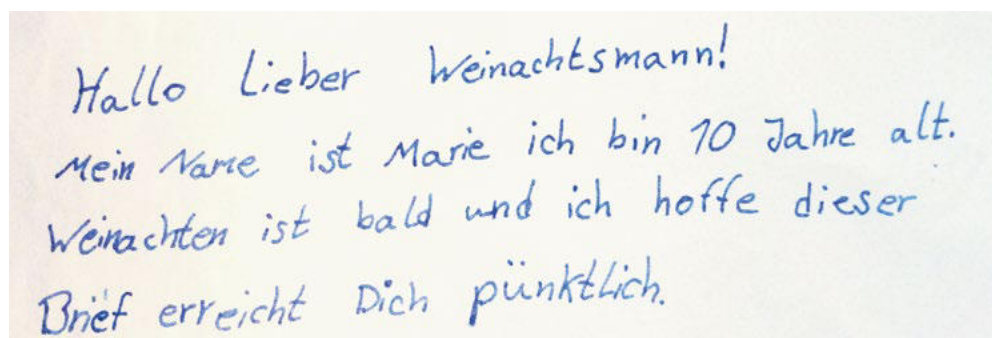 Hallo Lieber Weinachtsmann!
Mein Name ist Marie ich bin 10 Jahre alt.
Weinachten ist bald und ich hoffe dieser
Brief erreicht Dich pünktlich.